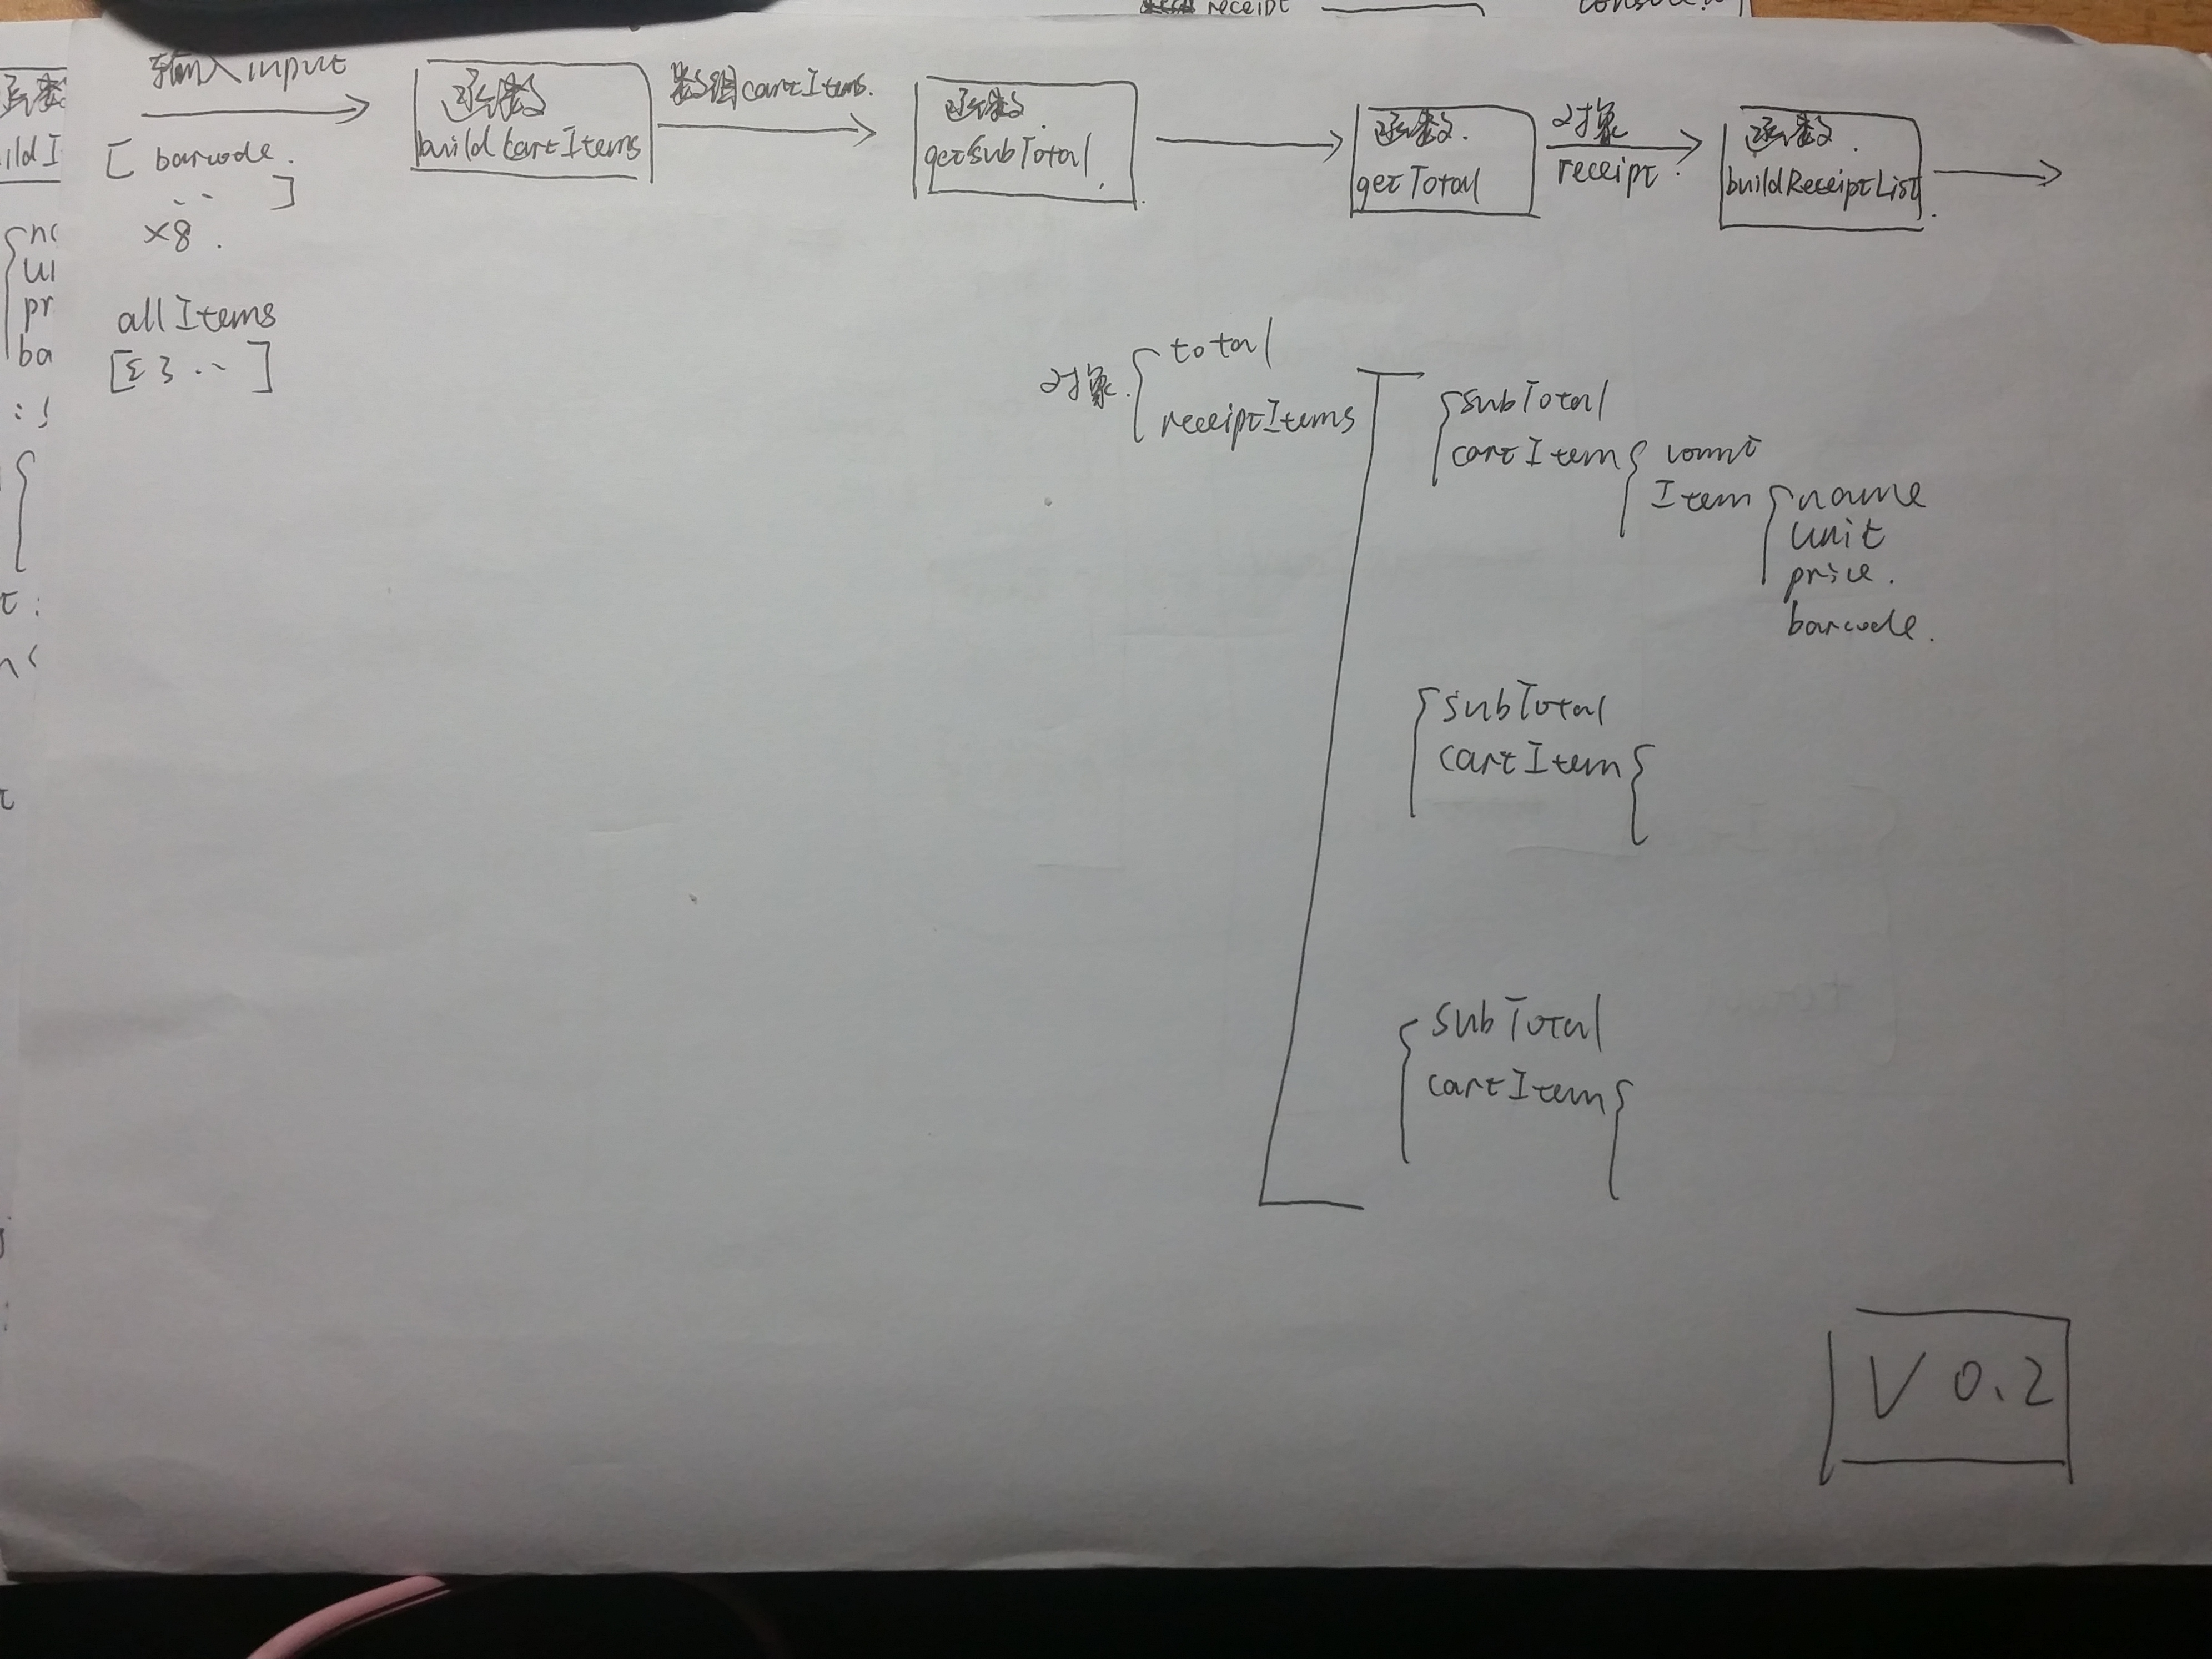 receipt
输入input
[ barcode.
.. ]
×8.
allItems
[{ } ..]
函数
buildCartItems
数组cartItems.
函数.
getSubTotal
函数.
getTotal
对象
receipt.
函数.
buildReceiptList
对象.
total
receiptItems
subTotal
cartItem
count
Item
name
unit
price.
barcode.
subTotal
cartItem
subTotal
cartItem
V 0.2
函数
ildI
pr
ba